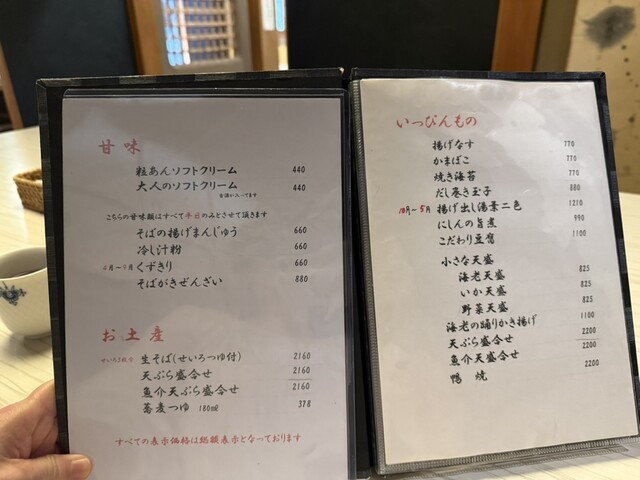 甘味
粒あんソフトクリーム 440
大人のソフトクリーム 440
お酒が入ってます
こちらの甘味類はすべて平日のみとさせて頂きます
そばの揚げまんじゅう 660
冷し汁粉 660
4月〜9月 くずきり 660
そばがきぜんざい 880
お土産
せいろ2枚分 生そば(せいろつゆ付) 2160
天ぷら盛合せ 2160
魚介天ぷら盛合せ 2160
蕎麦つゆ 180ml 378
すべての表示価格は総額表示となっております
いっぴんもの
揚げなす 770
かまぼこ 770
焼き海苔 770
だし巻き玉子 880
10月〜5月 揚げ出し湯葉二色 1210
にしんの旨煮 990
こだわり豆腐 1100
小さな天盛
海老天盛 825
いか天盛 825
野菜天盛 825
海老の踊りかき揚げ 1100
天ぷら盛合せ 2200
魚介天盛合せ 2200
鴨焼 2200